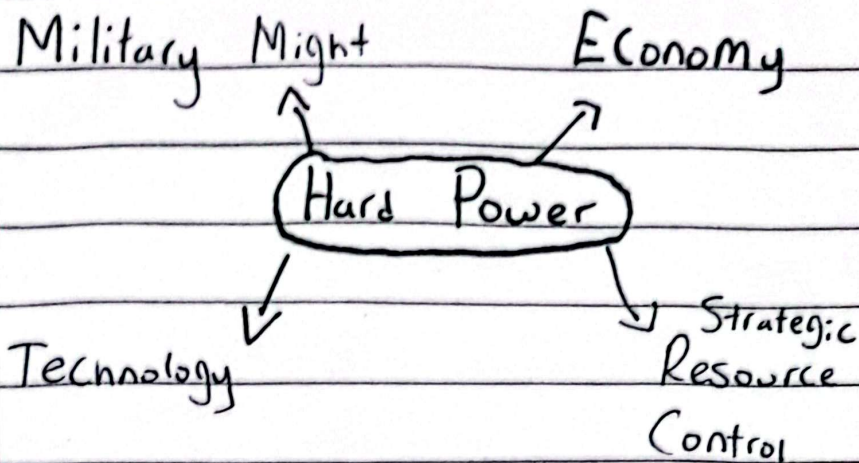 Military Might
Economy
Hard Power
Technology
Strategic
Resource
Control